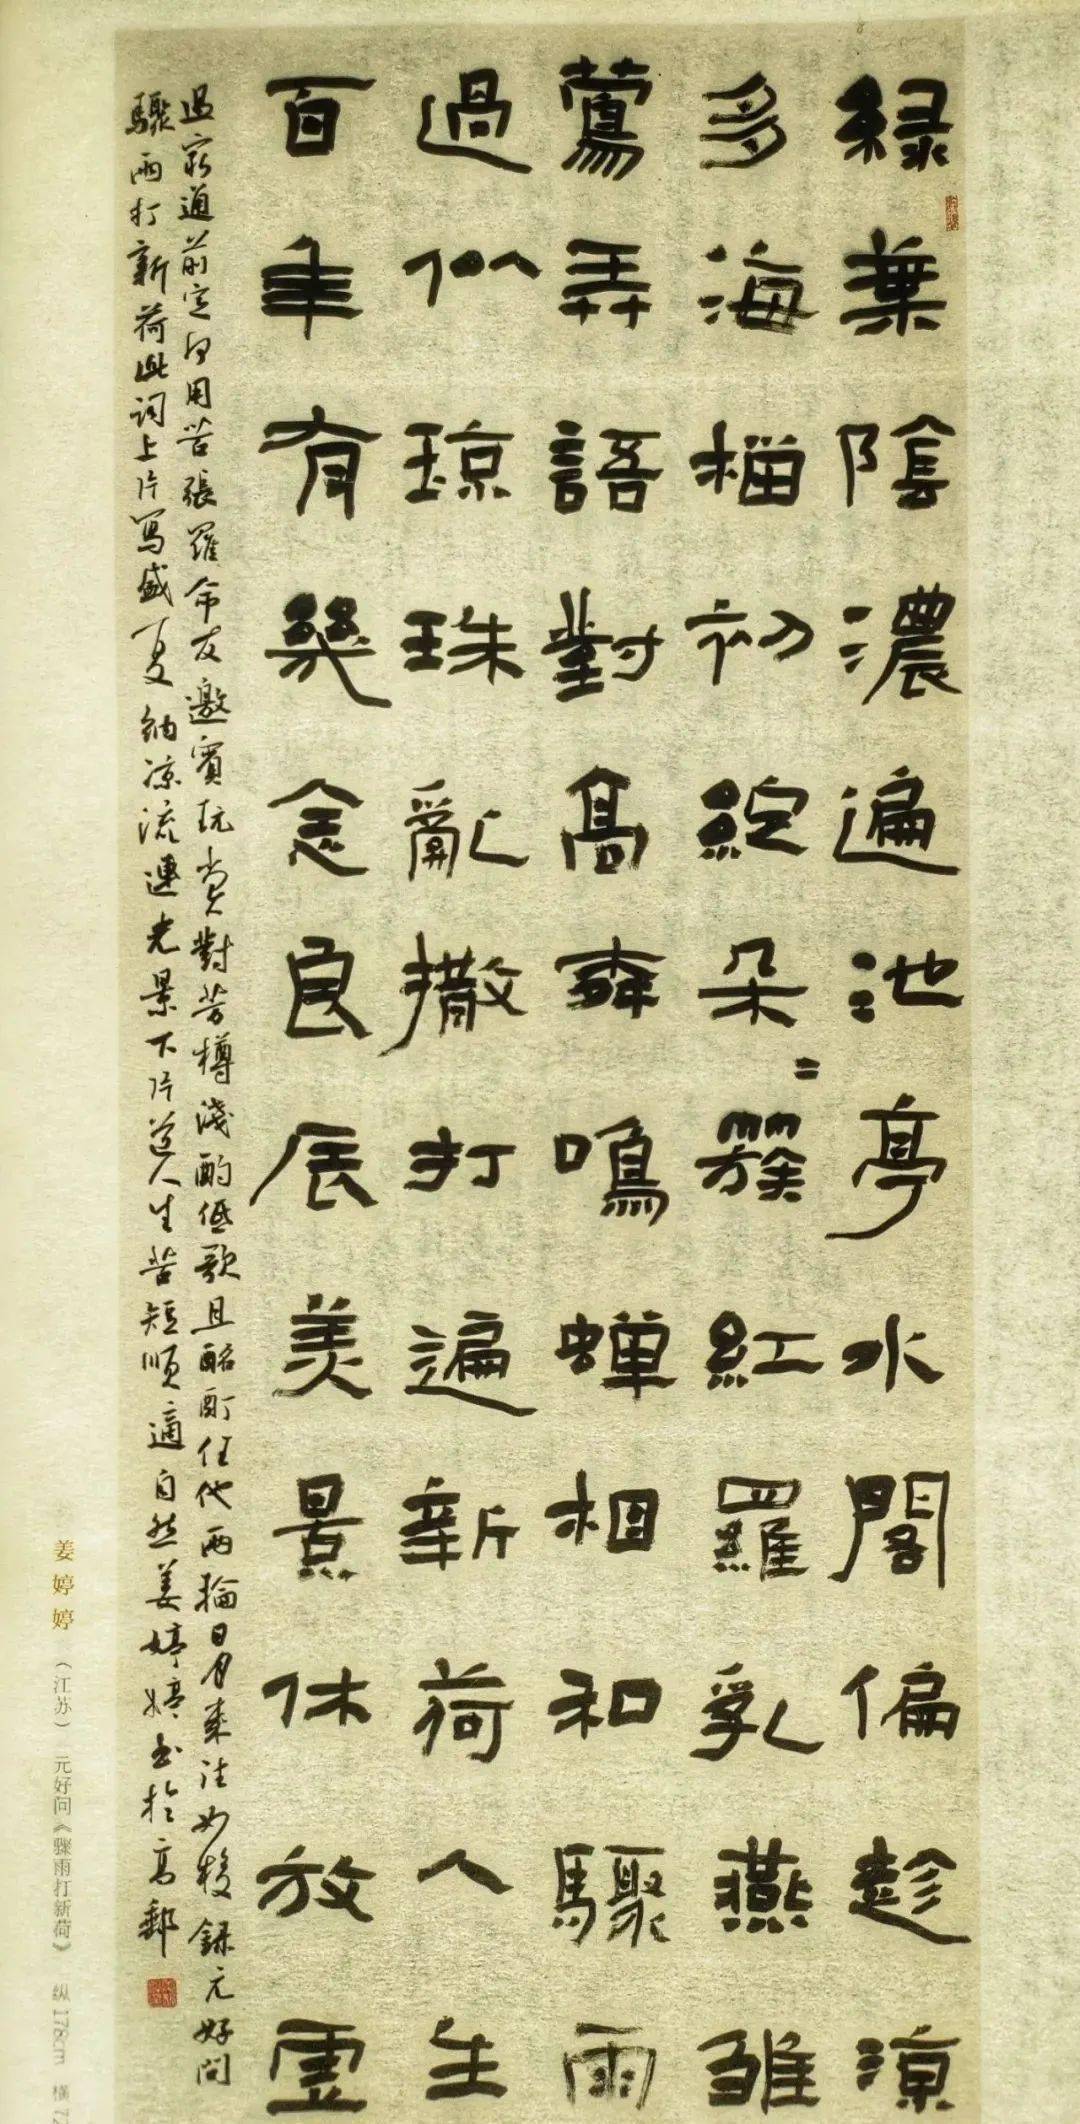 綠葉陰濃遍池亭水閣偏趁涼
多海榴初綻朵〻簇紅羅乳燕雛
鶯弄語對高柳鳴蟬相和驟雨
過似瓊珠亂撒打遍新荷人生
百年有幾念良辰美景休放虛
過窮通前定何用苦張羅命友邀賓玩賞對芳樽淺酌低歌且酩酊任他兩輪日月來往如梭錄元好問
驟雨打新荷此詞上片寫盛夏納涼流連光景下片道人生苦短順適自然姜婷婷書於高郵
姜婷婷（江苏）元好问《骤雨打新荷》 纵178cm 横72